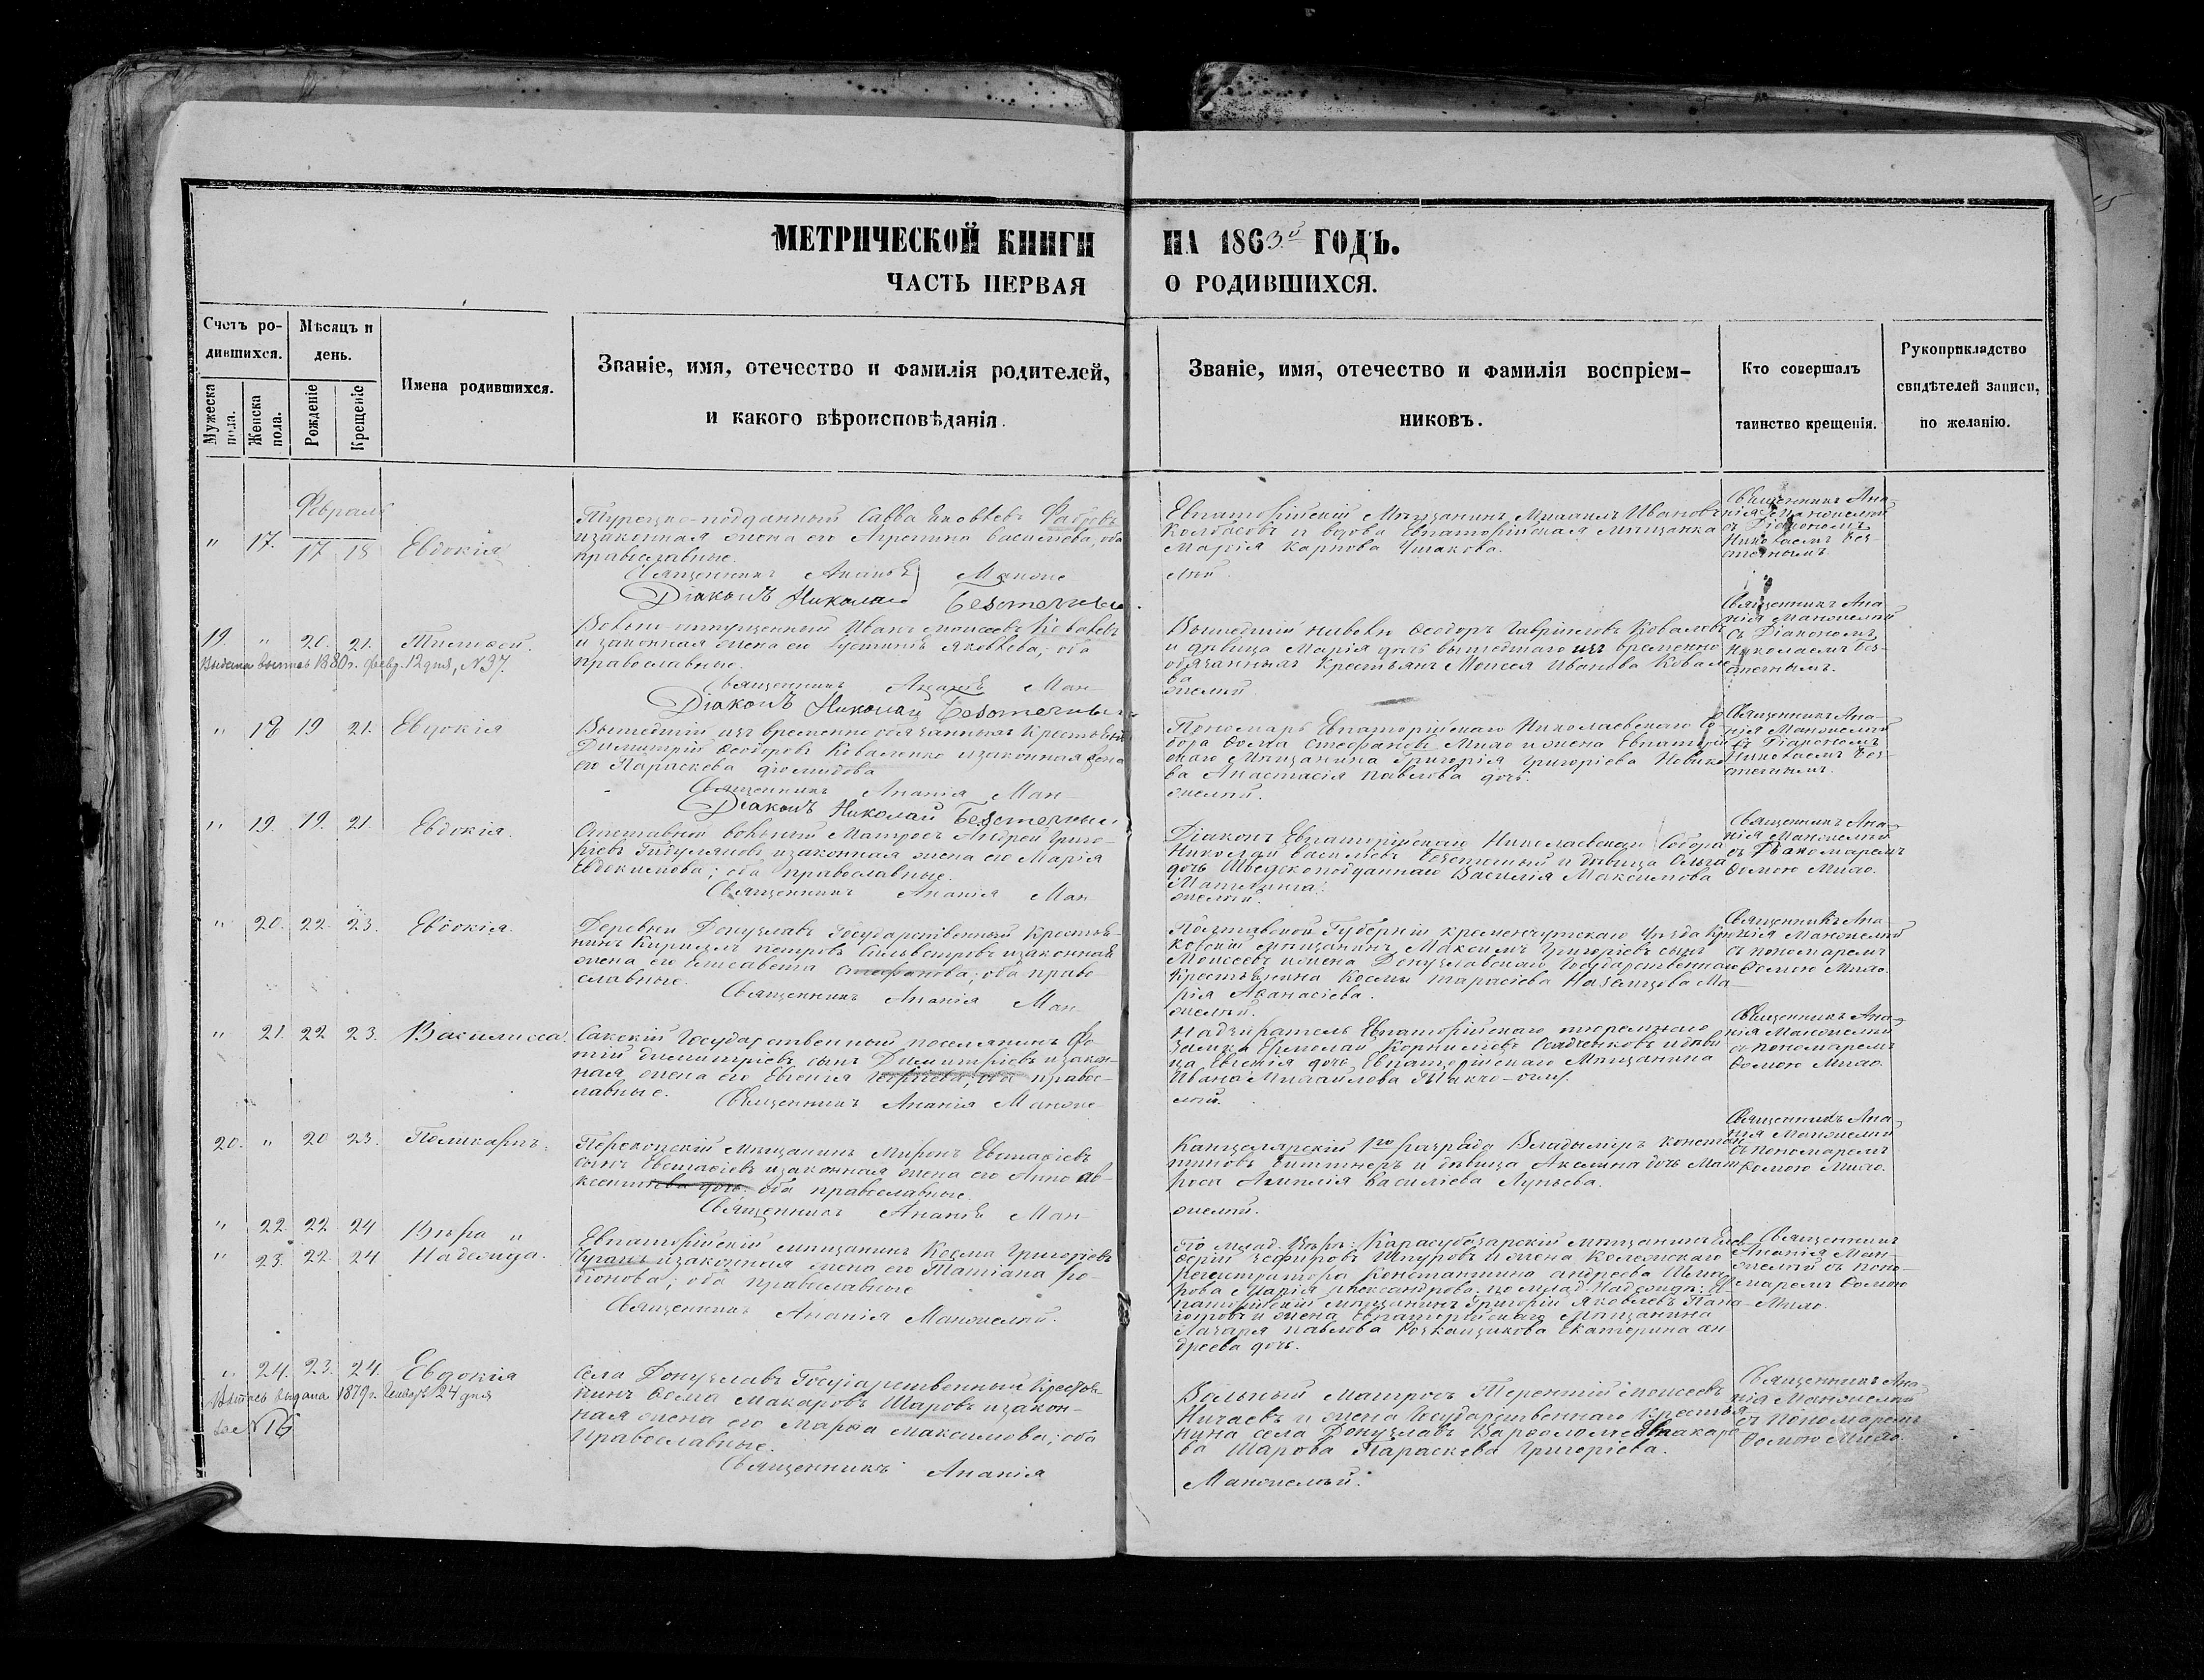 МЕТРИЧЕСКОЙ КНИГИ НА 1863й ГОДЪ.
ЧАСТЬ ПЕРВАЯ О РОДИВШИХСЯ.
Счетъ родившихся.
Мужеска пола.
Женска пола.
Мѣсяцъ и день.
Рожденіе
Крещеніе
Имена родившихся.
Званіе, имя, отечество и фамилія родителей,
и какого вѣроисповѣданія.
Званіе, имя, отечество и фамилія воспріем-
никовъ.
Кто совершалъ
таинство крещенія.
Рукоприкладство
свидѣтелей записи,
по желанію.
Февраль
" 17. 17 18 Евдокія
Турецко-подданный Савва Яковлевъ
и законная жена его Агрепина Васильева, оба
православные.
Священникъ Ананія Манже
Діаконъ Николай Безтечный
Евпаторійскій Мѣщанинъ Михаилъ Ивановъ
Колбасовъ и вдова Евпаторійская Мѣщанка
Марія Карпова Ушакова.
лѣй.
Священникъ Ана-
нія Манжелѣй
съ Діакономъ
Николаемъ Без-
течнымъ.
19 " 20. 21. Тимофей.
Выдана выпись 1880 г. февр. 12 дня, N 37.
Вольно-отпущенный Иванъ Моисеевъ Ковалевъ
и законная жена его Іустинія Яковлева, оба
православные.
Священникъ Ананія Ман-
Діаконъ Николай Безтечный
Ѳеодоръ Гавріиловъ Ковалевъ
и дѣвица Марія дочь вышедшаго изъ временно
обязанныхъ Крестьянъ Моисея Иванова Ковале-
ва
желѣй
Священникъ Ана-
нія Манжелѣй
съ Діакономъ
Николаемъ Без-
течнымъ.
" 18 19 21. Евдокія
Вышедшій изъ временно обязанныхъ Крестьянъ
Димитрій Ѳеодоровъ Коваленко и законная жена
его Параскева Діомидова
Священникъ Ананія Ман-
Діаконъ Николай Безтечный
Пономарь Евпаторійскаго Николаевскаго Со-
бора Ѳома Стефановъ Мило и жена Евпаторій-
скаго Мѣщанина Григорія Григоріева Новико-
ва Анастасія Павлова дочь.
желѣй.
Священникъ Ана-
нія Манжелѣй
съ Діакономъ
Николаемъ Без-
течнымъ.
" 19. 19. 21 Евдокія.
Отставной вольный Матросъ Андрей Григо-
ріевъ и законная жена его Марія
Евдокимова; оба православные.
Священникъ Ананія Ман-
Діаконъ Евпаторійскаго Николаевскаго Собора
Николай Васильевъ Безтечный и дѣвица Ольга
дочь Шведскоподданнаго Василія Максимова
желѣй.
Священникъ Ана-
нія Манжелѣй
съ Пономаремъ
Ѳомою Мило.
" 20. 22. 23. Евдокія.
Деревни Донузлавъ Государственный Крестья-
нинъ Кириллъ Петровъ Сильвестровъ и законная
жена его Елисавета Стефанова; оба право-
славные.
Священникъ Ананія Ман-
Полтавской Губерніи Кременчугскаго Уѣзда
мѣщанинъ Максимъ Григоріевъ сынъ
Моисеевъ и жена Донузлавскаго Государственнаго
Крестьянина Космы Тарасіева Ма-
рія Аѳанасіева.
желѣй.
Священникъ Ана-
нія Манжелѣй
съ пономаремъ
Ѳомою Мило.
" 21. 22 23. Василисса.
Сакскій Государственный поселянинъ Фо-
тій Димитріевъ сынъ Димитріевъ и закон-
ная жена его Евгенія оба правос-
лавные.
Священникъ Ананія Манже-
Надзиратель Евпаторійскаго тюремнаго
замка Ермолай Корниловъ и дѣви-
ца Евгенія дочь Евпаторійскаго Мѣщанина
Ивана Михайлова
лѣй.
Священникъ Ана-
нія Манжелѣй
съ пономаремъ
Ѳомою Мило.
20. " 20 23. Поликарпъ.
Перекопскій Мѣщанинъ Миронъ Евстафіевъ
сынъ Евстафіевъ и законная жена его Анна Ав-
ксентіева дочь. оба православные.
Священникъ Ананія Ман-
Канцелярскій 1го разряда Владиміръ Констан-
тиновъ и дѣвица Акелина дочь Мат-
роса Василіева Лунева.
желѣй.
Священникъ Ана-
нія Манжелѣй
съ пономаремъ
Ѳомою Мило.
" 22. 22 24 Вѣра "
" 23. 22. 24. Надежда.
Евпаторійскій мѣщанинъ Косма Григоріевъ
и законная жена его Татіана Ро-
діонова; оба православные
Священникъ Ананія Манжелѣй.
По млад. Вѣрѣ: Карасубазарскій мѣщанинъ
Шнуровъ и жена Колежскаго
Регистратора Константина Андреева
Марія Александрова. по млад. Надеждѣ: Ев-
паторійскій мѣщанинъ Григорій Яковлевъ
и жена Евпаторійскаго мѣщанина
Лазаря Павлова Екатерина Ан-
дреева дочь.
Священникъ
Ананія Ман-
желѣй съ поно-
маремъ Ѳомою
Мило.
" 24. 23. 24. Евдокія
Выпись выдана 1879 г. Января 24 дня
за N 16
Села Донузлавъ Государственный Крестья-
нинъ Ѳома Макаровъ Шаровъ и закон-
ная жена его Марѳа Максимова; оба
Православные.
Священникъ Ананія
Вольный матросъ Терентій Моисеевъ
Ничаевъ и жена Государственнаго крестья-
нина села Донузлавъ Варѳоломея Макаро-
ва Шарова Параскева Григоріева.
Манжелѣй.
Священникъ Ана-
нія Манжелѣй
съ Пономаремъ
Ѳомою Мило.